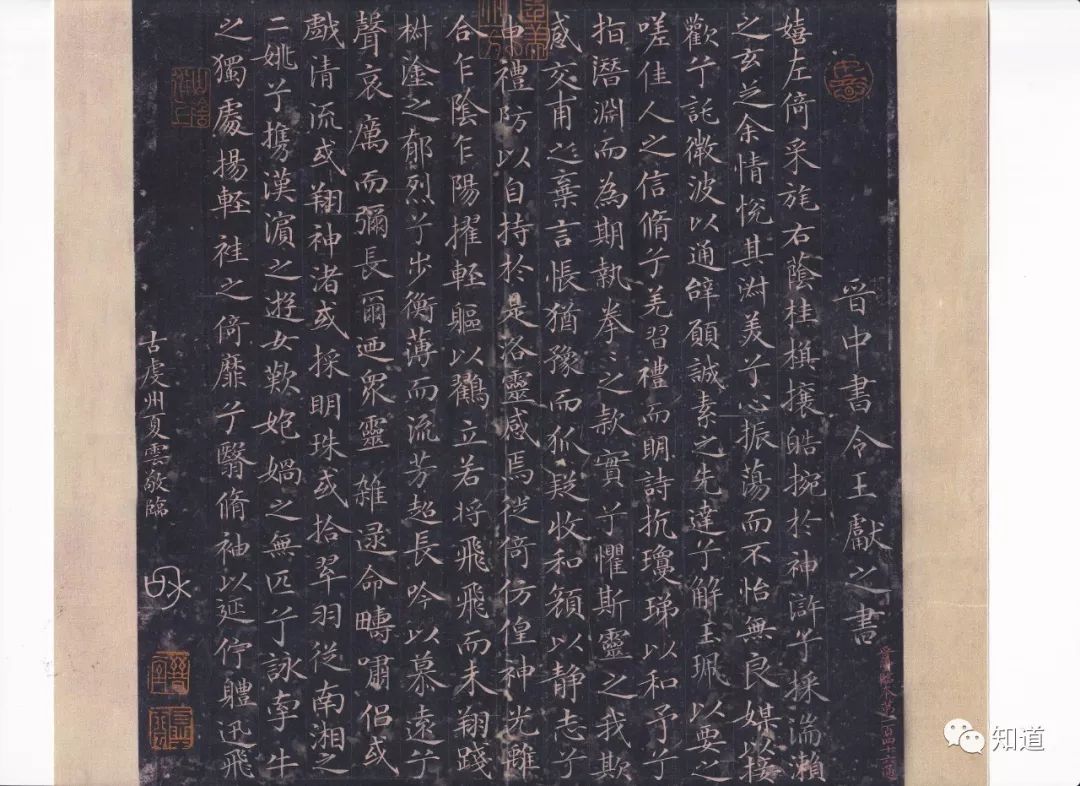 晋中書令王獻之書
嬉左倚采旄右蔭桂旗攘皓捥於神滸兮採湍瀨
之玄芝余情悅其淑美兮心振蕩而不怡無良媒以接
歡兮託微波以通辭願誠素之先達兮解玉珮以要之
嗟佳人之信脩兮羌習禮而明詩抗瓊珶以和予兮
指潛淵而為期執拳〻之款實兮懼斯靈之我欺
感交甫之棄言悵猶豫而狐疑收和顏以静志兮
申禮防以自持於是洛靈感焉徙倚仿偟神光離
合乍陰乍陽擢輕軀以鶴立若将飛飛而未翔踐
椒塗之郁烈兮步衡薄而流芳超長吟以慕遠兮
聲哀厲而彌長爾迺眾靈雜遝命疇嘯侶或
戲清流或翔神渚或採明珠或拾翠羽從南湘之
二姚兮攜漢濱之遊女歎匏媧之無匹兮詠牽牛
之獨處揚輕袿之倚靡兮翳脩袖以延佇軆迅飛
古虔州夏雲敬臨
山陰
知道